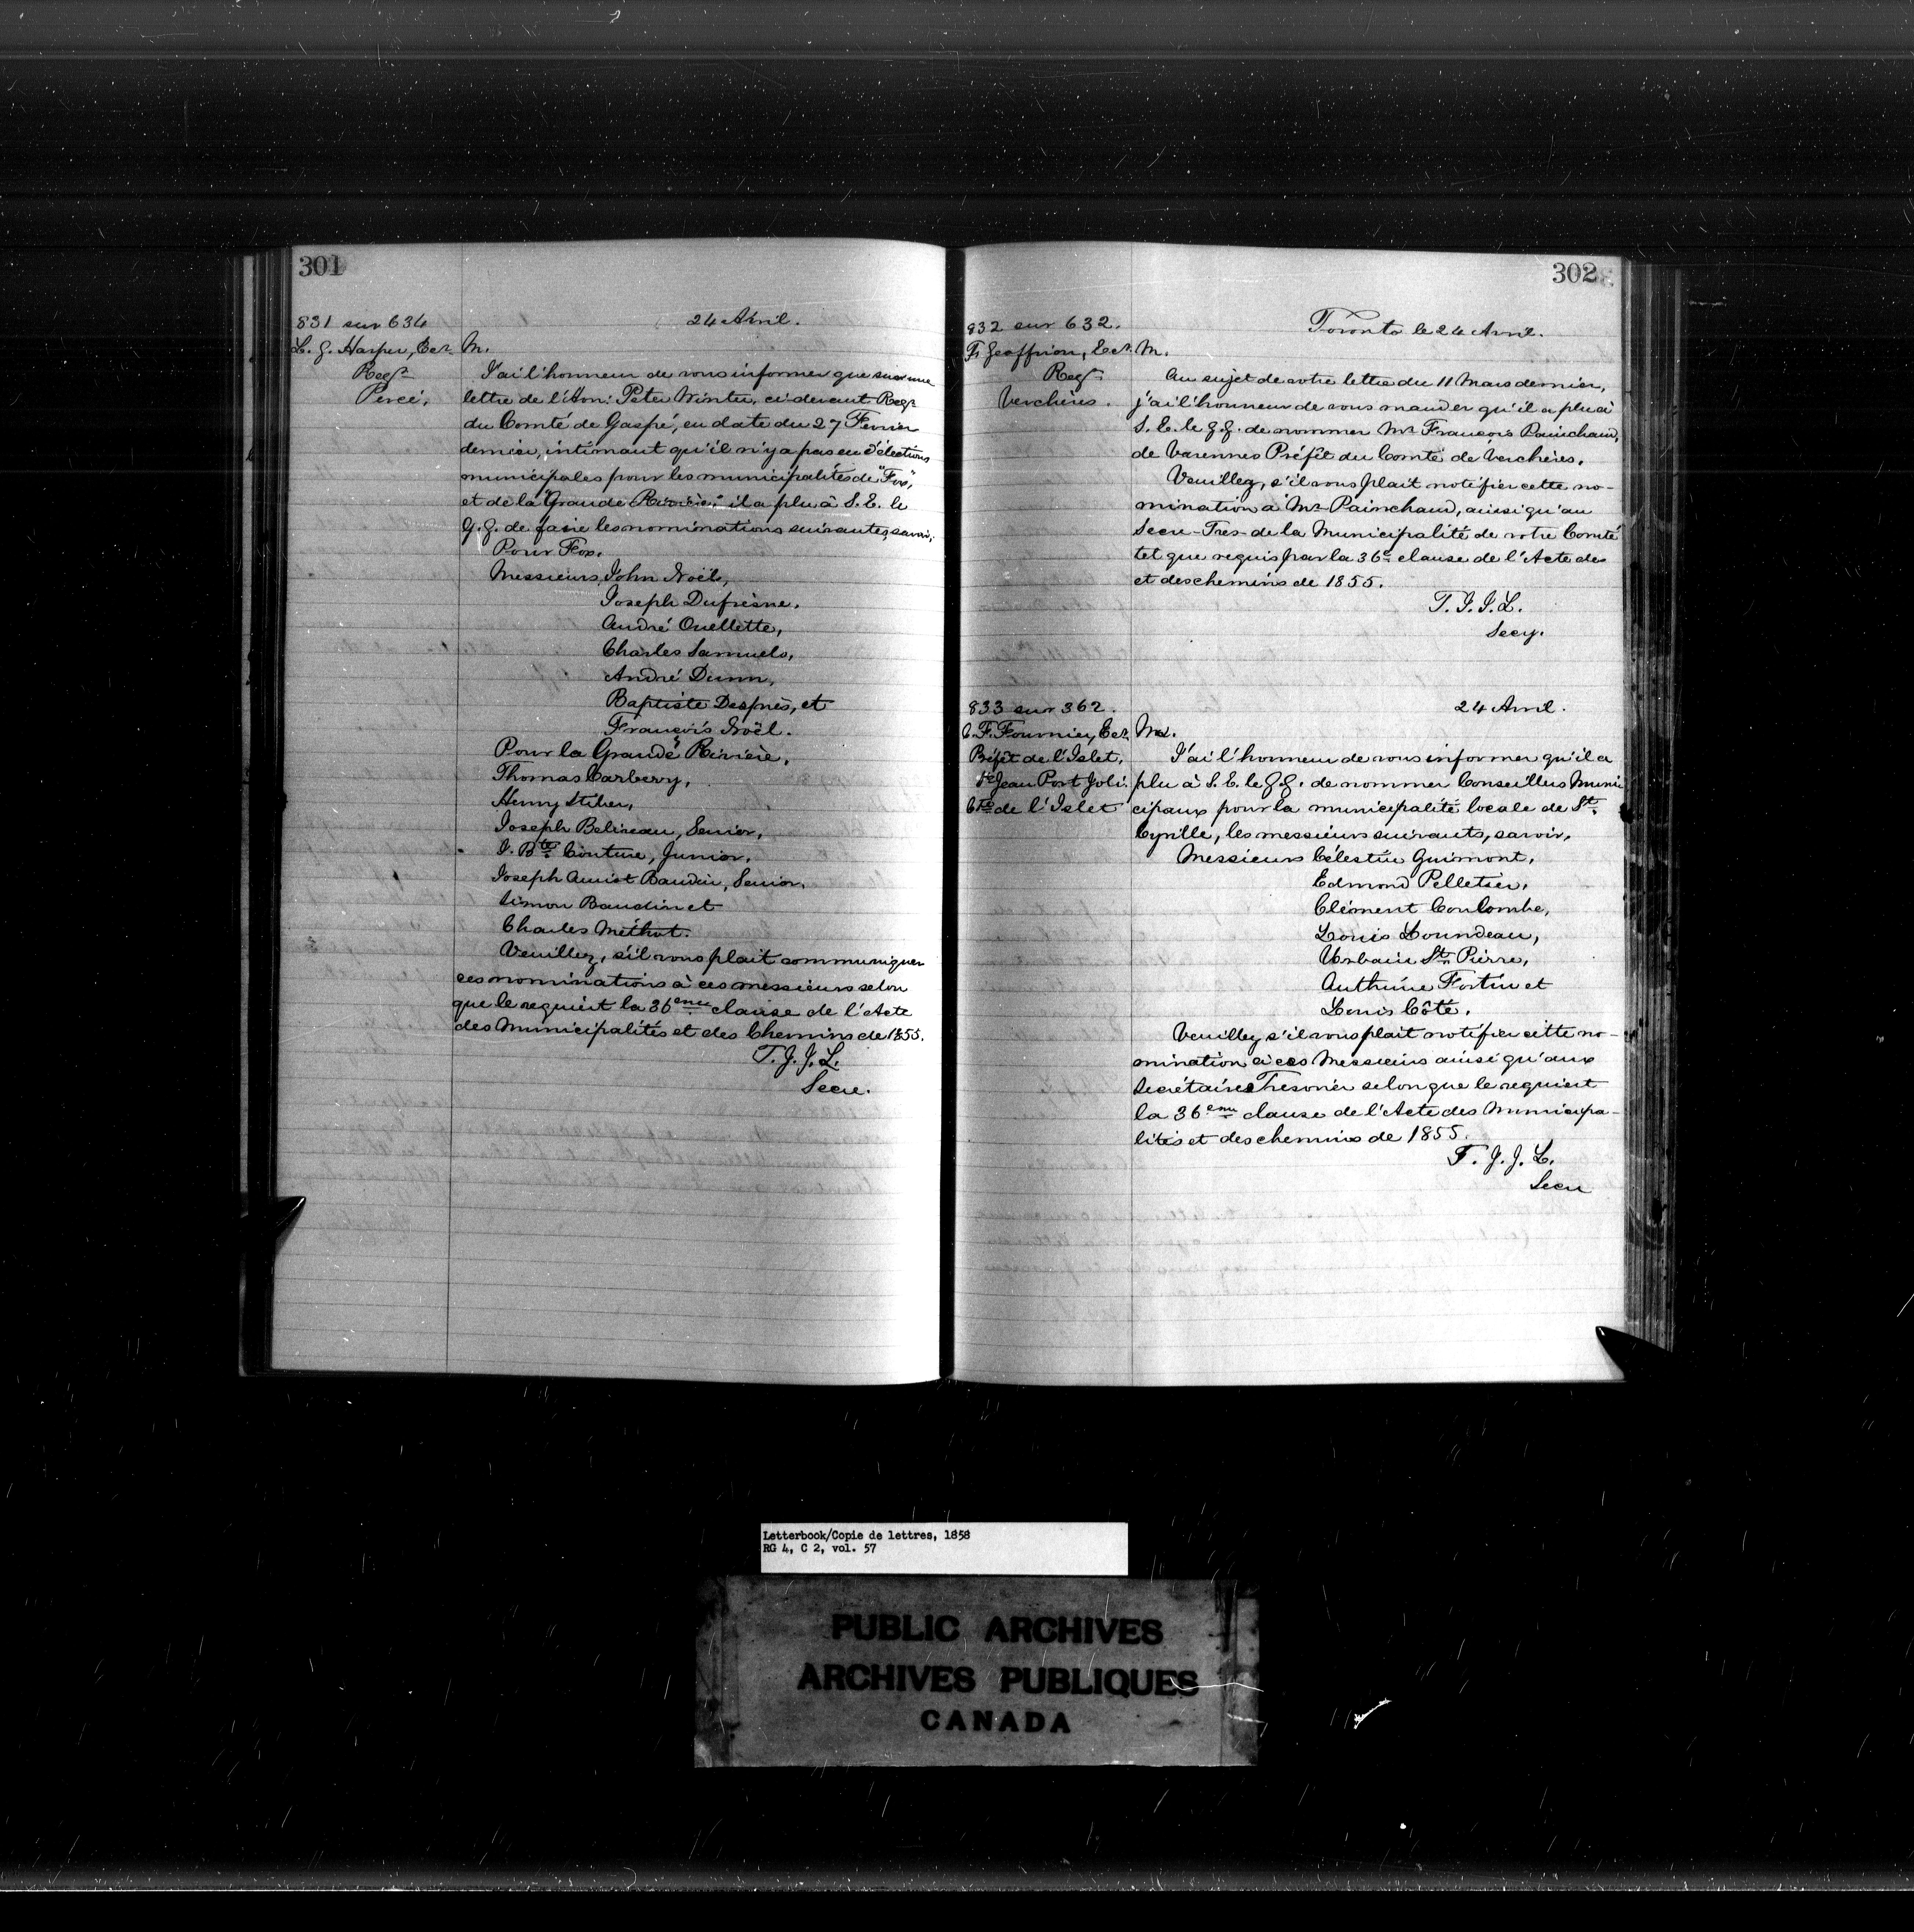 301
831 sur 634
24 Avril.
L. G. Harper, Ecr.
Regr.
Percé.
M.
J'ai l'honneur de vous informer que sur une
lettre de l'Hon: Peter Winter, ci-devant Regr.
du Comté de Gaspé, en date du 27 Fevrier
dernier, intimant qu'il n'y a pas eu d'élections
municipales pour les municipalités de "Fox,"
et de la "Grande Rivière," il a plu à S. E. le
G. G. de faire les nominations suivantes, savoir,
Pour Fox.
Messieurs, John Noël,
Joseph Dufresne,
André Ouellette,
Charles Samuels,
André Dunn,
Baptiste Després, et
François Noël.
Pour la Grande Rivière,
Thomas Carbery,
Henry Stiber,
Joseph Beliveau, Senior,
J. Bte. Couture, Junior,
Joseph Amist Baudin, Senior,
Simon Baudin et
Charles Méthot.
Veuillez, s'il vous plait communiquer
ces nominations à ces messieurs selon
que le requiert la 36eme clause de l'Acte
des Municipalités et des Chemins de 1855.
T. J. J. L.
Secre.
302
832 sur 632.
Toronto le 24 Avril.
F. Geoffrion, Ecr.
Regr.
Verchères.
M.
Au sujet de votre lettre du 11 Mars dernier,
j'ai l'honneur de vous mander qu'il a plu à
S. E. le G. G. de nommer Mr. François Painchaud,
de Varennes Préfêt du Comté de Verchères.
Veuillez, s'il vous plait notifier cette no-
mination à Mr. Painchaud, ainsi qu'au
Secre-Tres- de la Municipalité de votre Comté
tel que requis par la 36e clause de l'Acte des
et des chemins de 1855.
T. J. J. L.
Secy.
833 sur 362.
24 Avril.
C. F. Fournier, Ecr.
Préfêt de l'Islet,
St Jean Port Joli.
Cté de l'Islet
M.
J'ai l'honneur de vous informer qu'il a
plu à S. E. le G. G. de nommer Conseillers Muni
cipaux pour la municipalité locale de St.
Cyrille, les messieurs suivants, savoir,
Messieurs Célestin Guimont,
Edmond Pelletier,
Clément Coulombe,
Louis Loundeau,
Urbain St. Pierre,
Anthime Fortin et
Louis Côté.
Veuillez s'il vous plait notifier cette no-
mination à ces Messieurs ainsi qu'aux
Secrétaires Tresorier selon que le requiert
la 36eme clause de l'Acte des Municipa-
lités et des chemins de 1855.
T. J. J. L.
Secre
Letterbook/Copie de lettres, 1858
RG 4, C 2, vol. 57
PUBLIC ARCHIVES
ARCHIVES PUBLIQUES
CANADA